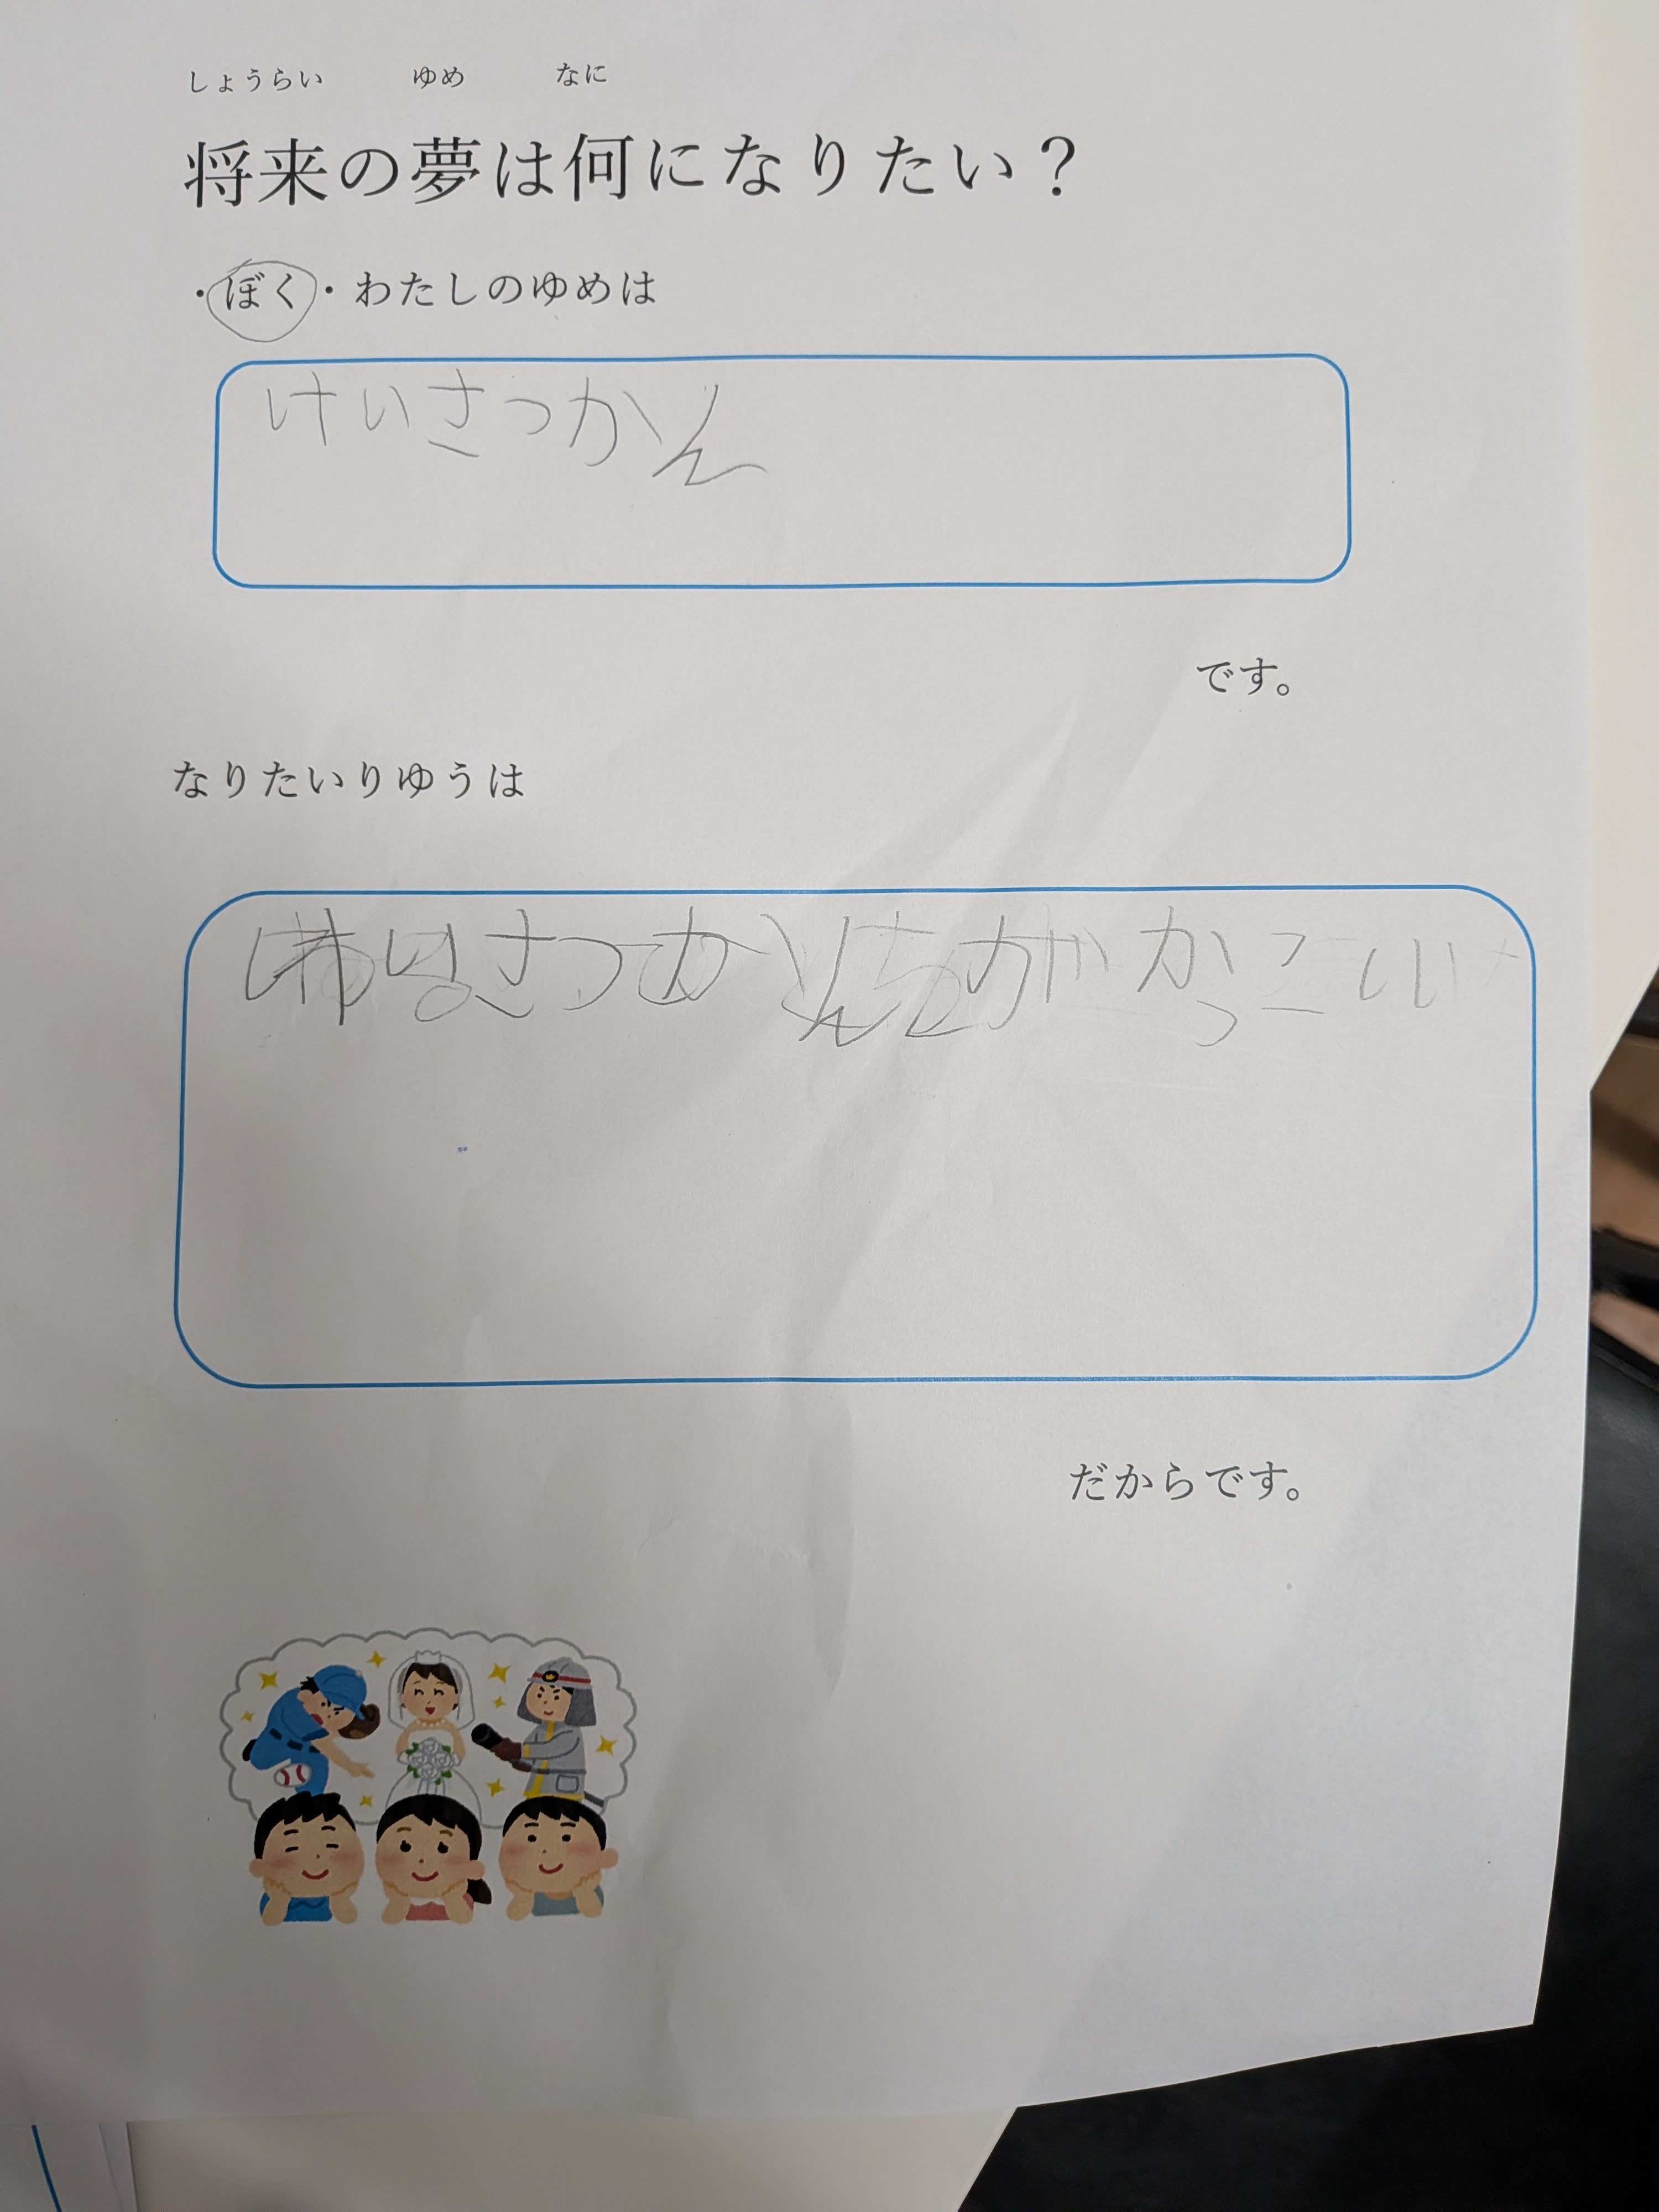 しょうらい ゆめ なに
将来の夢は何になりたい？
・ぼく・わたしのゆめは
けいさつかん
です。
なりたいりゆうは
けいさつかんがかっこいい
だからです。